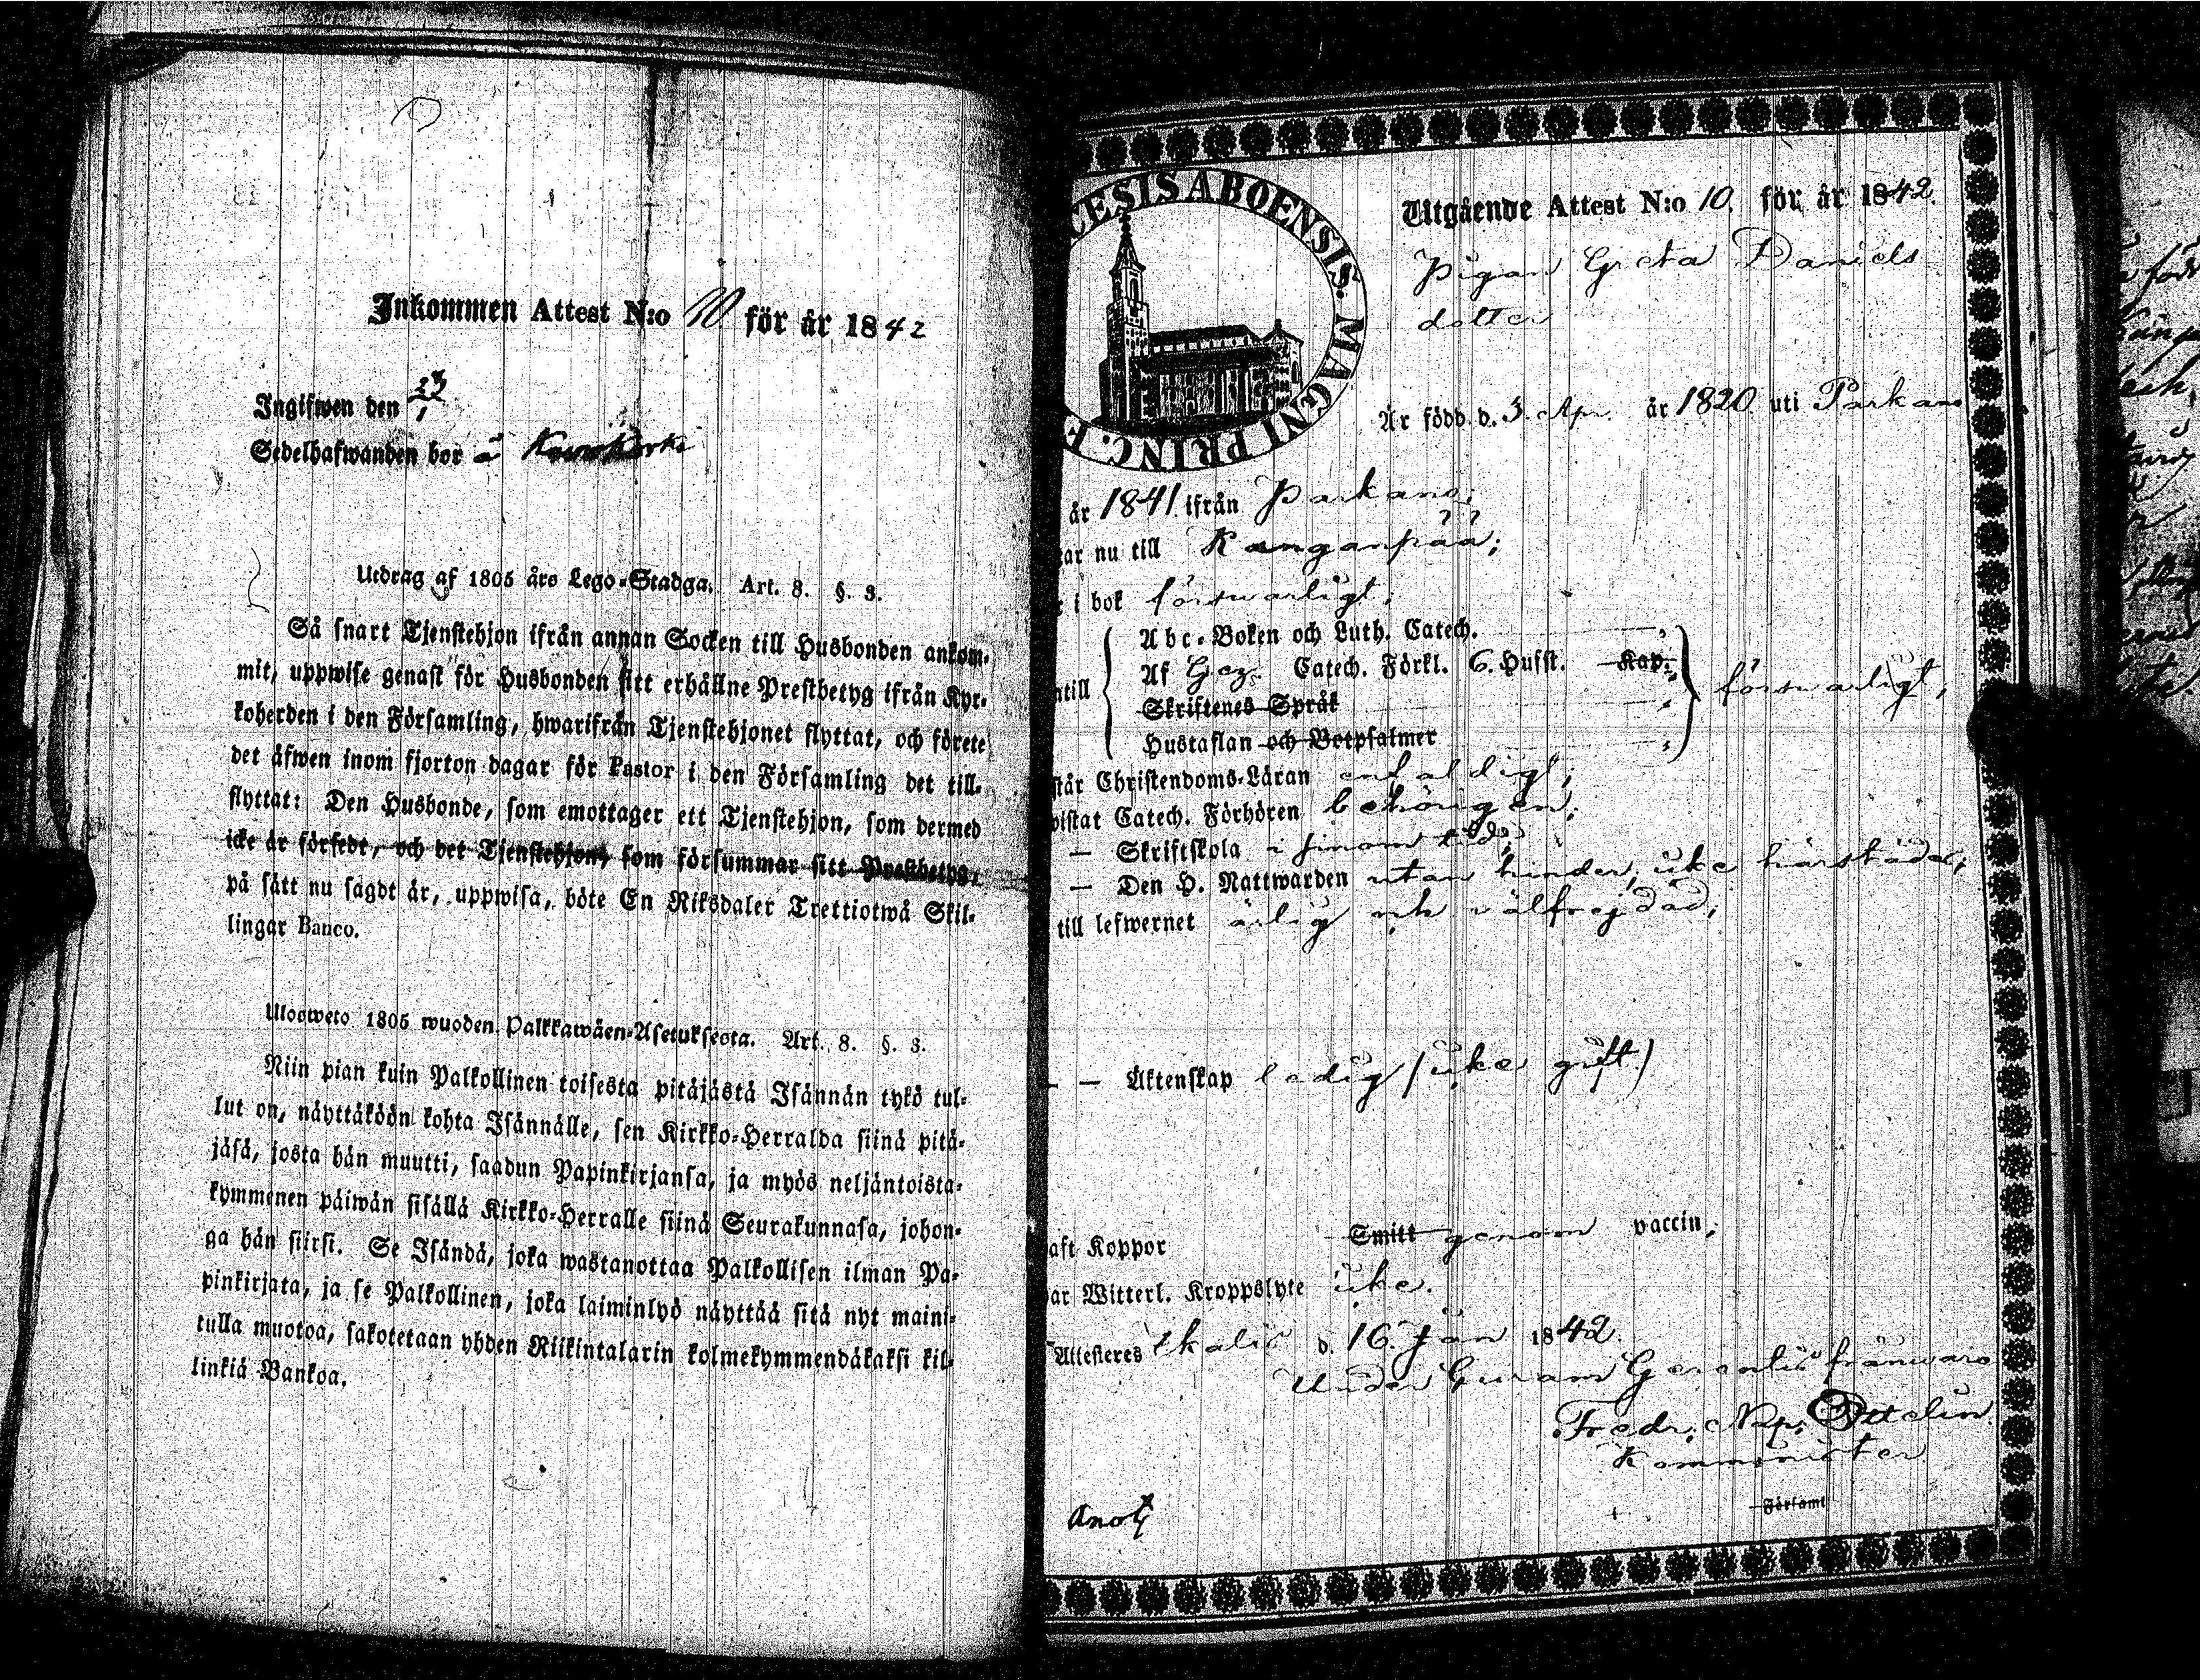 Inkommen Attest N:o 10 för år 1842
Ingifwen den 23/1
Sedelhafwanden bor å
Utdrag af 1805 års Lego-Stadga. Art. 8. §. 3.
Så snart Tjenstehjon ifrån annan Socken till Husbonden ankom-
mit, uppwise genast för Husbonden sitt erhållne Prestbetyg ifrån Kyr-
koherden i den Församling, hwarifrån Tjenstehjonet flyttat, och förete
det äfwen inom fjorton dagar för Pastor i den Församling det till-
flyttat: Den Husbonde, som emottager ett Tjenstehjon, som dermed
icke är försedt, och det Tjenstehjon, som försummar sitt Prestbetyg,
på sätt nu sagdt är, uppwisa, böte En Riksdaler Trettiotwå Skil-
lingar Banco.
Ulosweto 1805 wuoden Palkkawäen-Asetuksesta. Art. 8. §. 3.
Niin pian kuin Palkollinen toisesta pitäjästä Isännän tykö tul-
lut on, näyttäköön kohta Isännälle, sen Kirkko-Herralda siinä pitä-
jäsä, josta hän muutti, saadun Papinkirjansa, ja myös neljäntoista-
kymmenen päiwän sisällä Kirkko-Herralle siinä Seurakunnasa, johon-
ga hän siirsi. Se Isändä, joka wastanottaa Palkollisen ilman Pa-
pinkirjata, ja se Palkollinen, joka laiminlyö näyttää sitä nyt maini-
tulla muotoa, sakotetaan yhden Riikintalarin kolmekymmendäkaksi kil-
linkiä Bankoa.
CESIS ABOENSIS. MAGNI PRINC. F
Utgående Attest N:o 10. för år 1842.
Pigan Greta Daniels
dotter
Är född. d. 3. Apr. år 1820 uti Parkano
år 1841 ifrån Parkano;
tar nu till Kanganpää;
r i bok förswarligt;
Abc-Boken och Luth. Catech.
ntill Af Gez. Catech. Förkl. 6. Husst. Kap. förswarligt;
Skriftenes Språk
Hustaflan och Botpsalmer
står Christendoms-Läran enfaldigt;
wistat Catech. Förhören behörigen;
— Skriftskola i sinom tid;
— Den H. Nattwarden utan hinder, icke härstädes;
till lefwernet ärlig och välfrejdad;
— — Äktenskap ledig (icke gift.)
aft Koppor Smitt genom vaccin;
ar Witterl. Kroppslyte icke.
Attesteres Ikalis d. 16. Jan 1842.
Under Curam Gerentis frånwaro
Fredr. Nap. Ottelin.
Kommınister
Församl
Anot